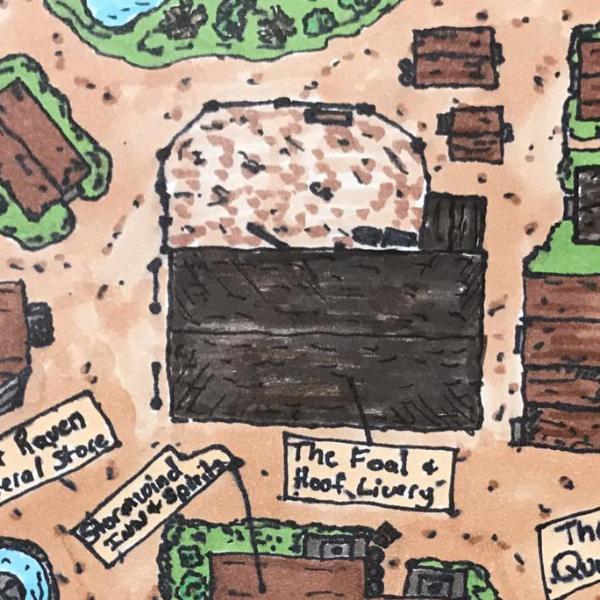 Raven
eral Store
Stormwind
Inn & Spirits
The Foal &
Hoof Livery
The
Qu